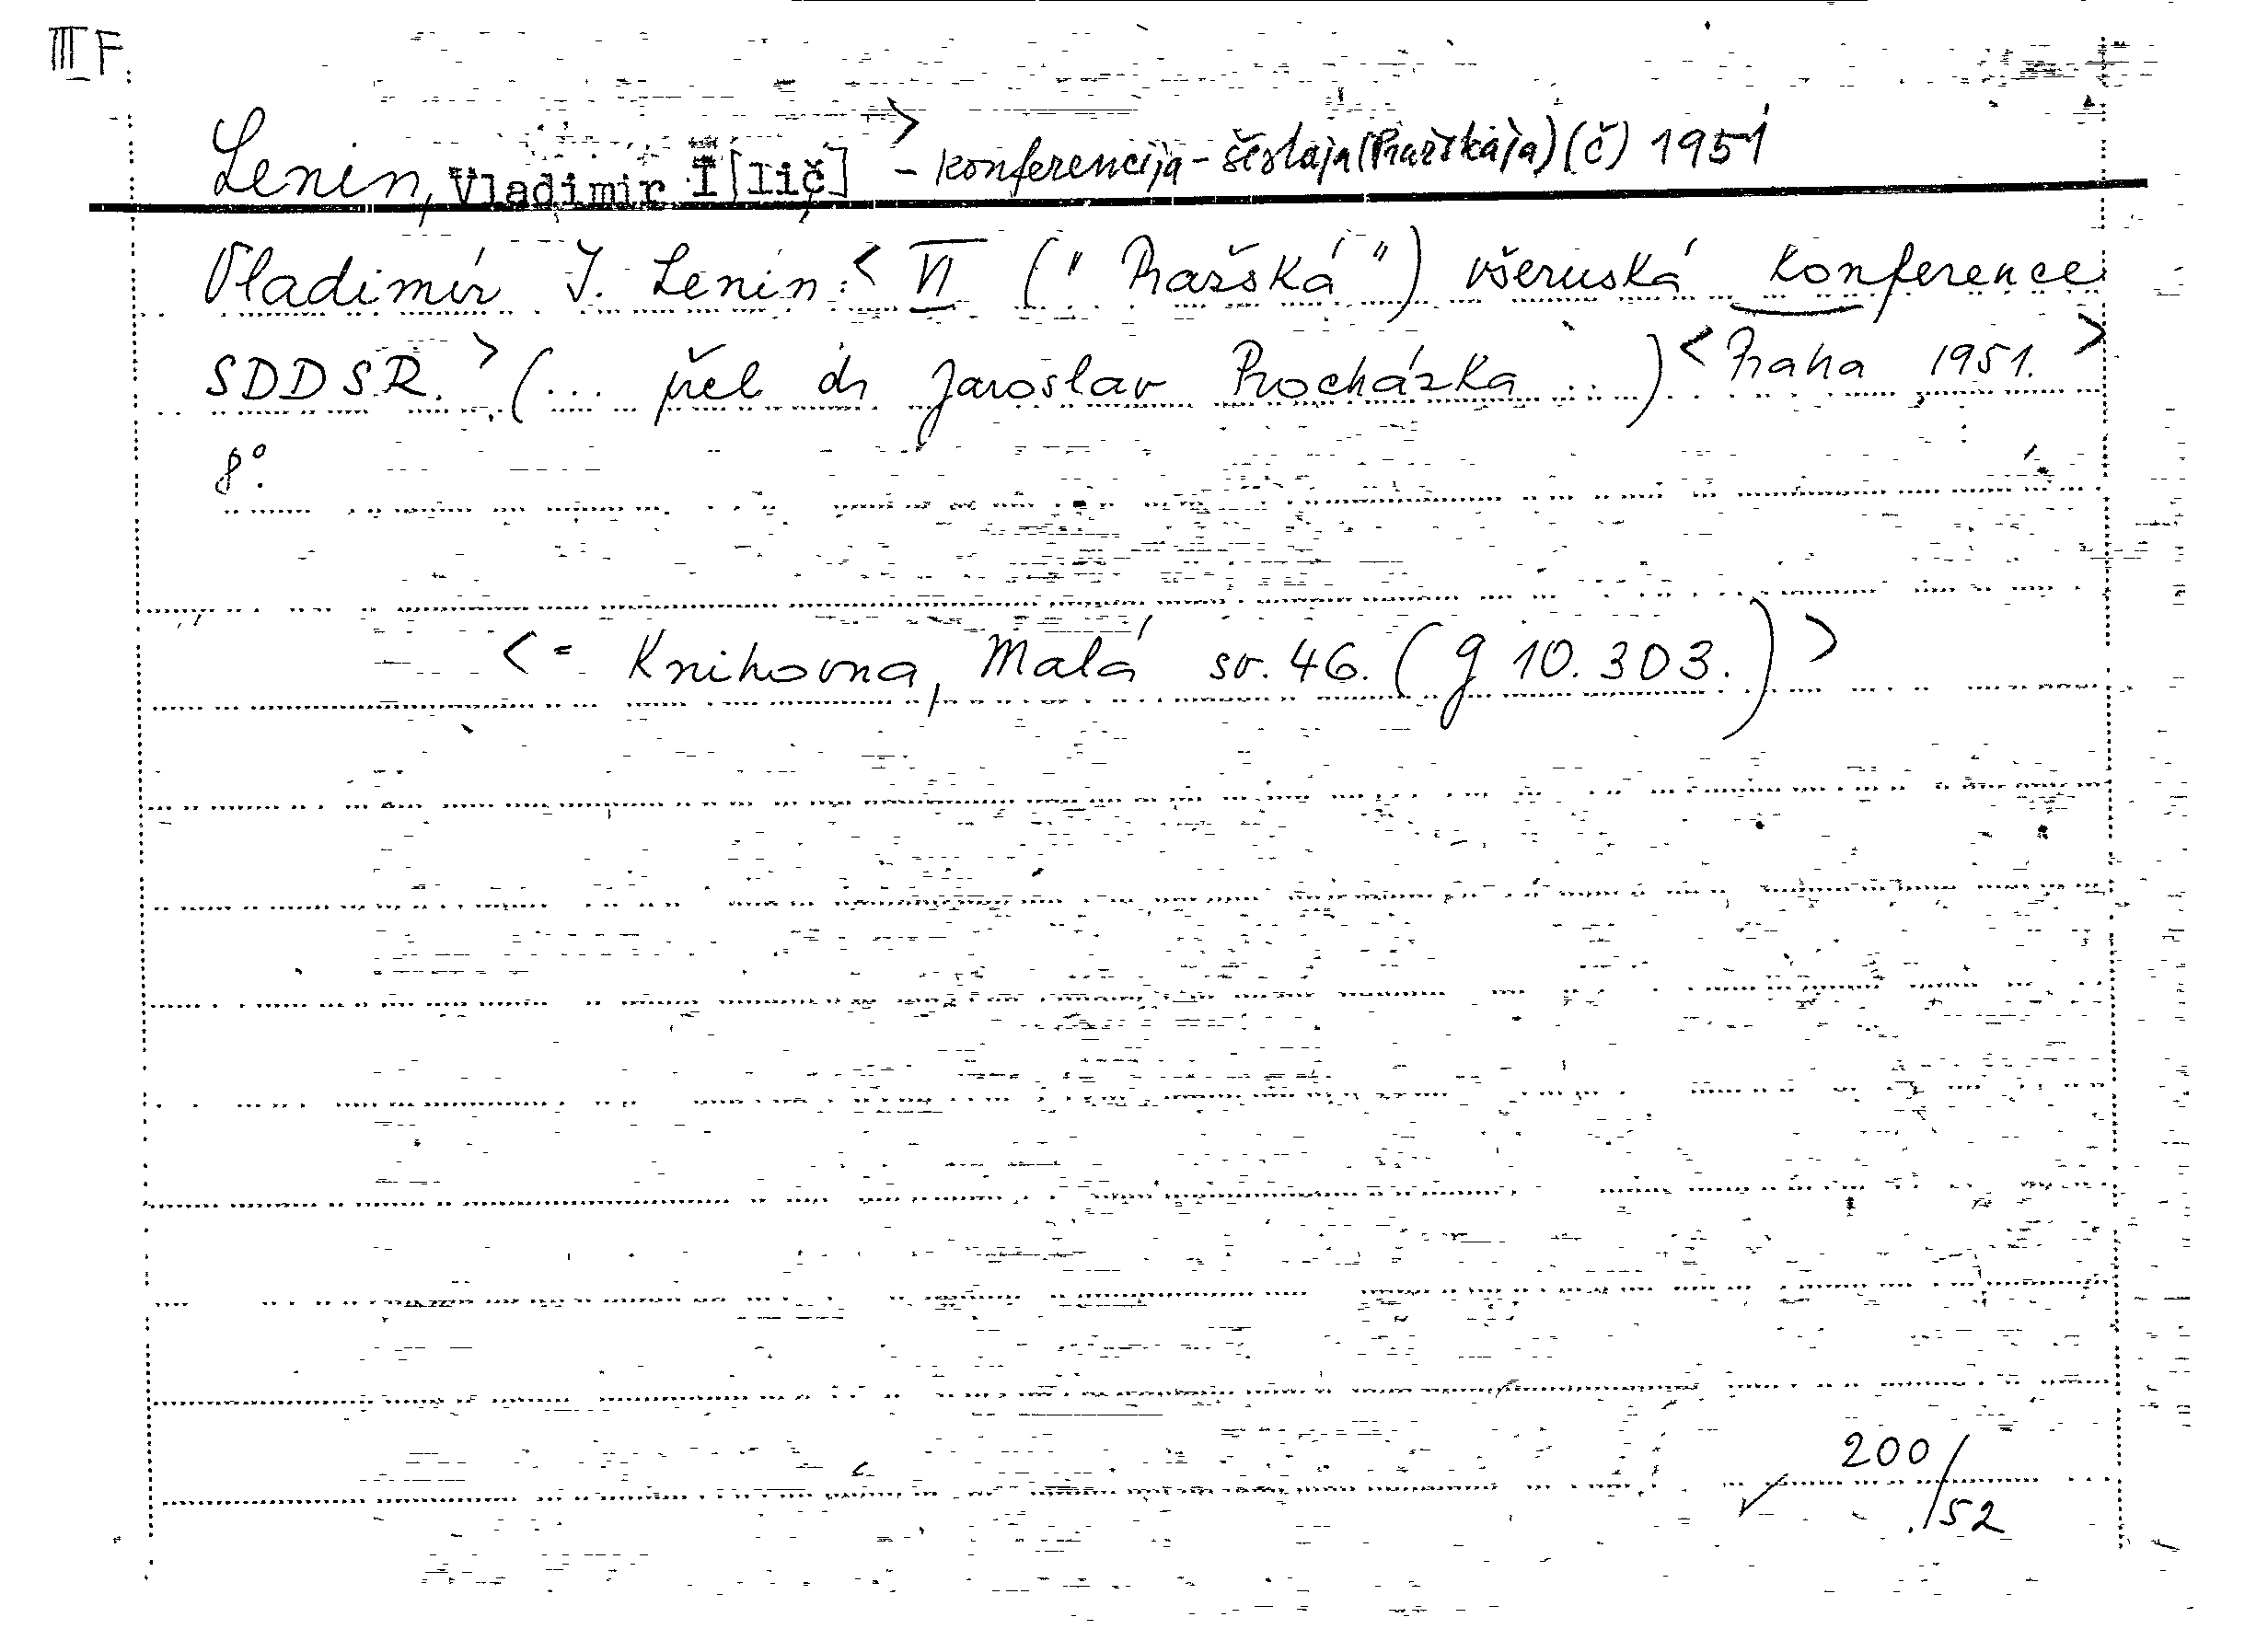 III F.
Lenin, Vladimir I[lič] > - konferencija - šestaja (Pražskaja) (č) 1951
Vladimír I. Lenin: < VI ("Pražská") všeruská konference
SDDSR. > (... přel dr Jaroslav Procházka ...) < Praha 1951. >
8°.
< = Knihovna, Malá sv. 46. (g 10.303.) >
200/52